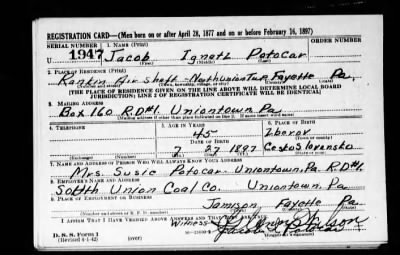 REGISTRATION CARD—(Men born on or after April 28, 1877 and on or before February 16, 1897)
SERIAL NUMBER 1. NAME (Print) ORDER NUMBER
U 1947 Jacob Ignatz Potocar
(First) (Middle) (Last)
2. PLACE OF RESIDENCE (Print)
Rankin Air Shaft - North Union Twp. Fayette Pa.
(THE PLACE OF RESIDENCE GIVEN ON THE LINE ABOVE WILL DETERMINE LOCAL BOARD
JURISDICTION; LINE 2 OF REGISTRATION CERTIFICATE WILL BE IDENTICAL)
3. MAILING ADDRESS
Box 160 R.D#1. Uniontown Pa
(Mailing address if other than place indicated on line 2. If same insert word same)
4. TELEPHONE 5. AGE IN YEARS 6. PLACE OF BIRTH
45 Zborov
DATE OF BIRTH
7 27 1897 Ceskoslovensko
(Exchange) (Number) (Mo.) (Day) (Yr.)
7. NAME AND ADDRESS OF PERSON WHO WILL ALWAYS KNOW YOUR ADDRESS
Mrs. Susie Potocar. Uniontown, Pa. R.D#1.
8. EMPLOYER'S NAME AND ADDRESS
South Union Coal Co. Uniontown, Pa
9. PLACE OF EMPLOYMENT OR BUSINESS
Jamison, Fayette Pa.
(Number and street or R. F. D. number) (Town) (County) (State)
I AFFIRM THAT I HAVE VERIFIED ABOVE ANSWERS AND THAT THEY ARE TRUE.
Witness
D. S. S. Form 1
(Revised 4-1-42) (over)